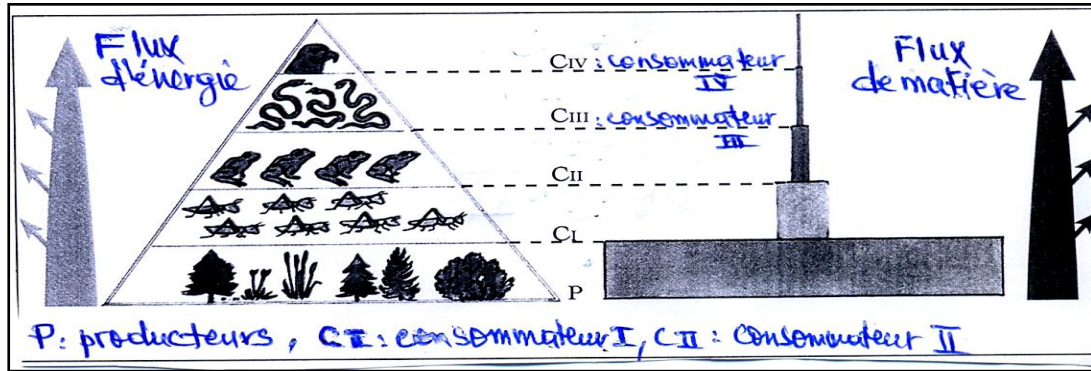 Flux
d'énergie
CIV : consommateur
IV
CIII : consommateur
III
CII
CI
P
Flux
de matière
P: producteurs, CI : consommateur I, CII : consommateur II